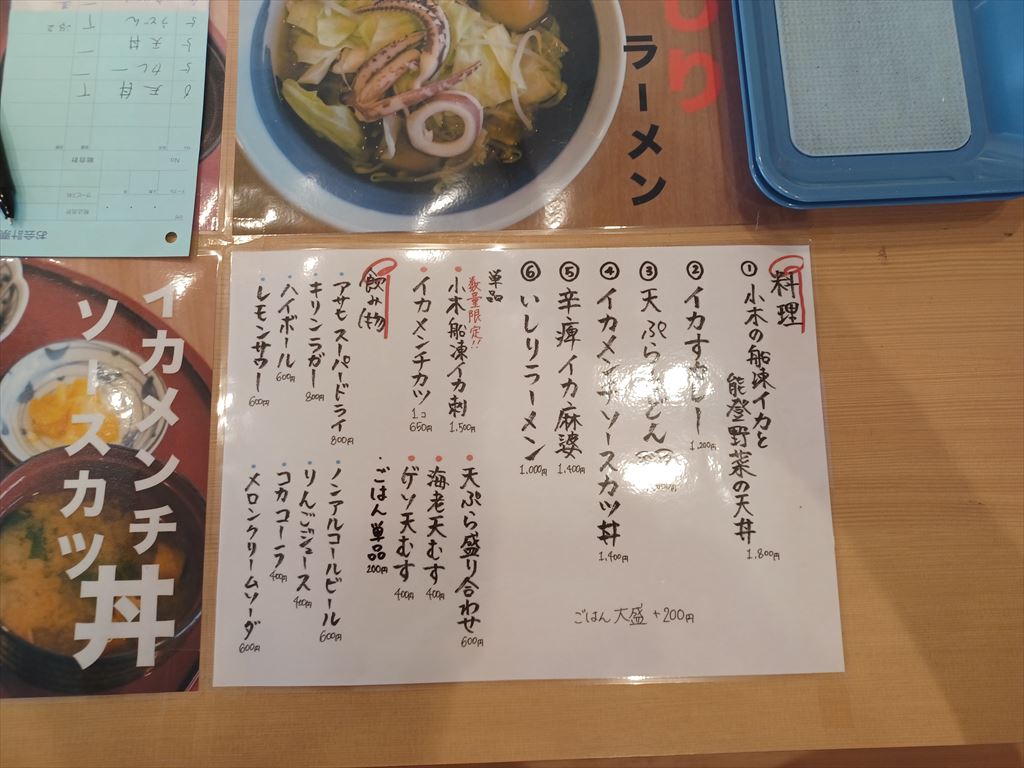 ラーメン
料理
① 小木の船凍イカと
能登野菜の天丼
1,800円
② イカすカレー
1,200円
③ 天ぷらうどん
④ イカメンチソースカツ丼
1,400円
⑤ 辛痺イカ麻婆
1,400円
⑥ いしりラーメン
1,000円
ごはん大盛 +200円
単品
数量限定!!
・小木船凍イカ刺
1,500円
・イカメンチカツ
1コ
650円
・天ぷら盛り合わせ
600円
・海老天むす
400円
・ゲソ天むす
400円
・ごはん単品
200円
飲み物
・アサヒスーパードライ
800円
・キリンラガー
800円
・ハイボール
600円
・レモンサワー
600円
・ノンアルコールビール
600円
・りんごジュース
400円
・コカコーラ
400円
・メロンクリームソーダ
600円
イカメンチ
ソースカツ丼
お会計票